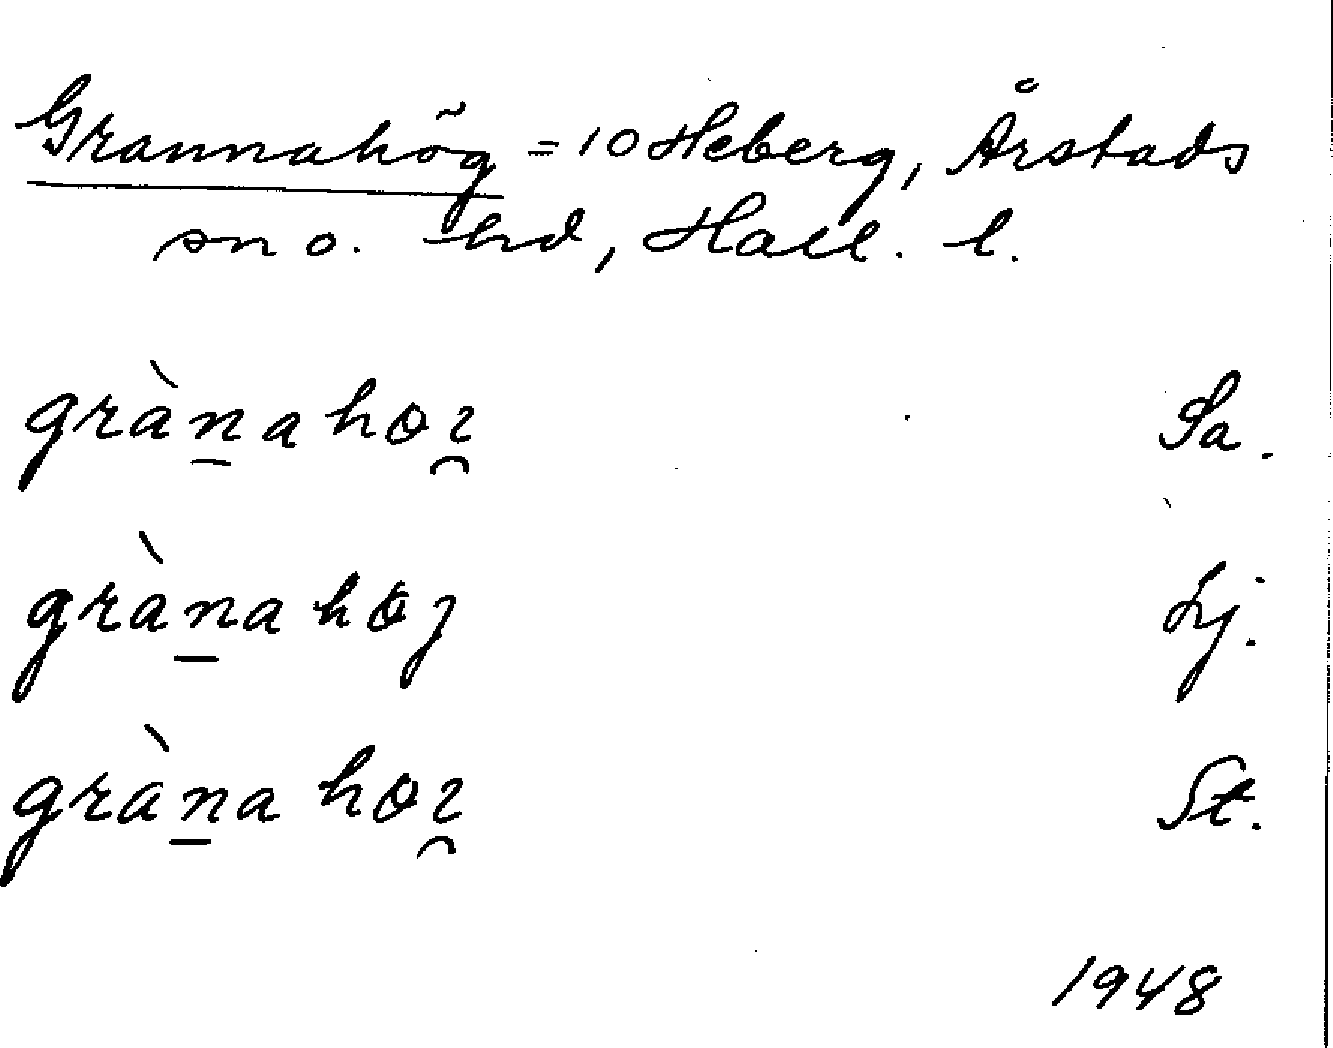 Grannahög = 10 Heberg, Årstads
sn o. hd, Hall. l.
grànahɵı̯ Sa.
grànahɵȷ Lj.
grànahɵı̯ St.
1948